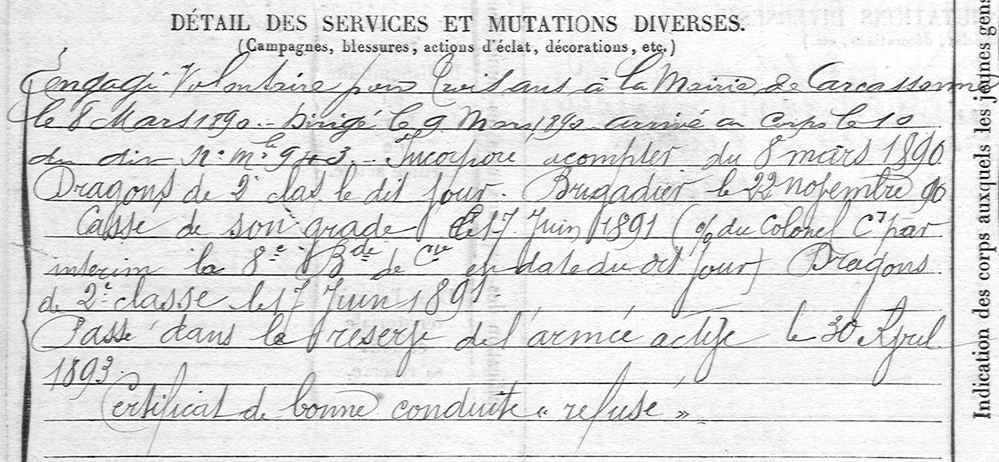 DÉTAIL DES SERVICES ET MUTATIONS DIVERSES.
(Campagnes, blessures, actions d'éclat, décorations, etc.)
Engagé Volontaire pour trois ans à la Mairie de Carcassonne
le 8 Mars 1890 - Dirigé le 9 Mars 1890 - arrivé au corps le 10
du dit N° mle 943. - Incorporé a compter du 8 mars 1890
Dragons de 2e clas le dit jour - Brigadier le 22 novembre 90
Cassé de son grade le 17 Juin 1891 (o/ du Colonel Ct par
interim la 8e Bde de Cie en date du dit jour) Dragons
de 2e classe le 17 Juin 1891.
Passé dans la réserve de l'armée active le 30 Avril
1893.
Certificat de bonne conduite « refusé »
Indication des corps auxquels les jeunes gens